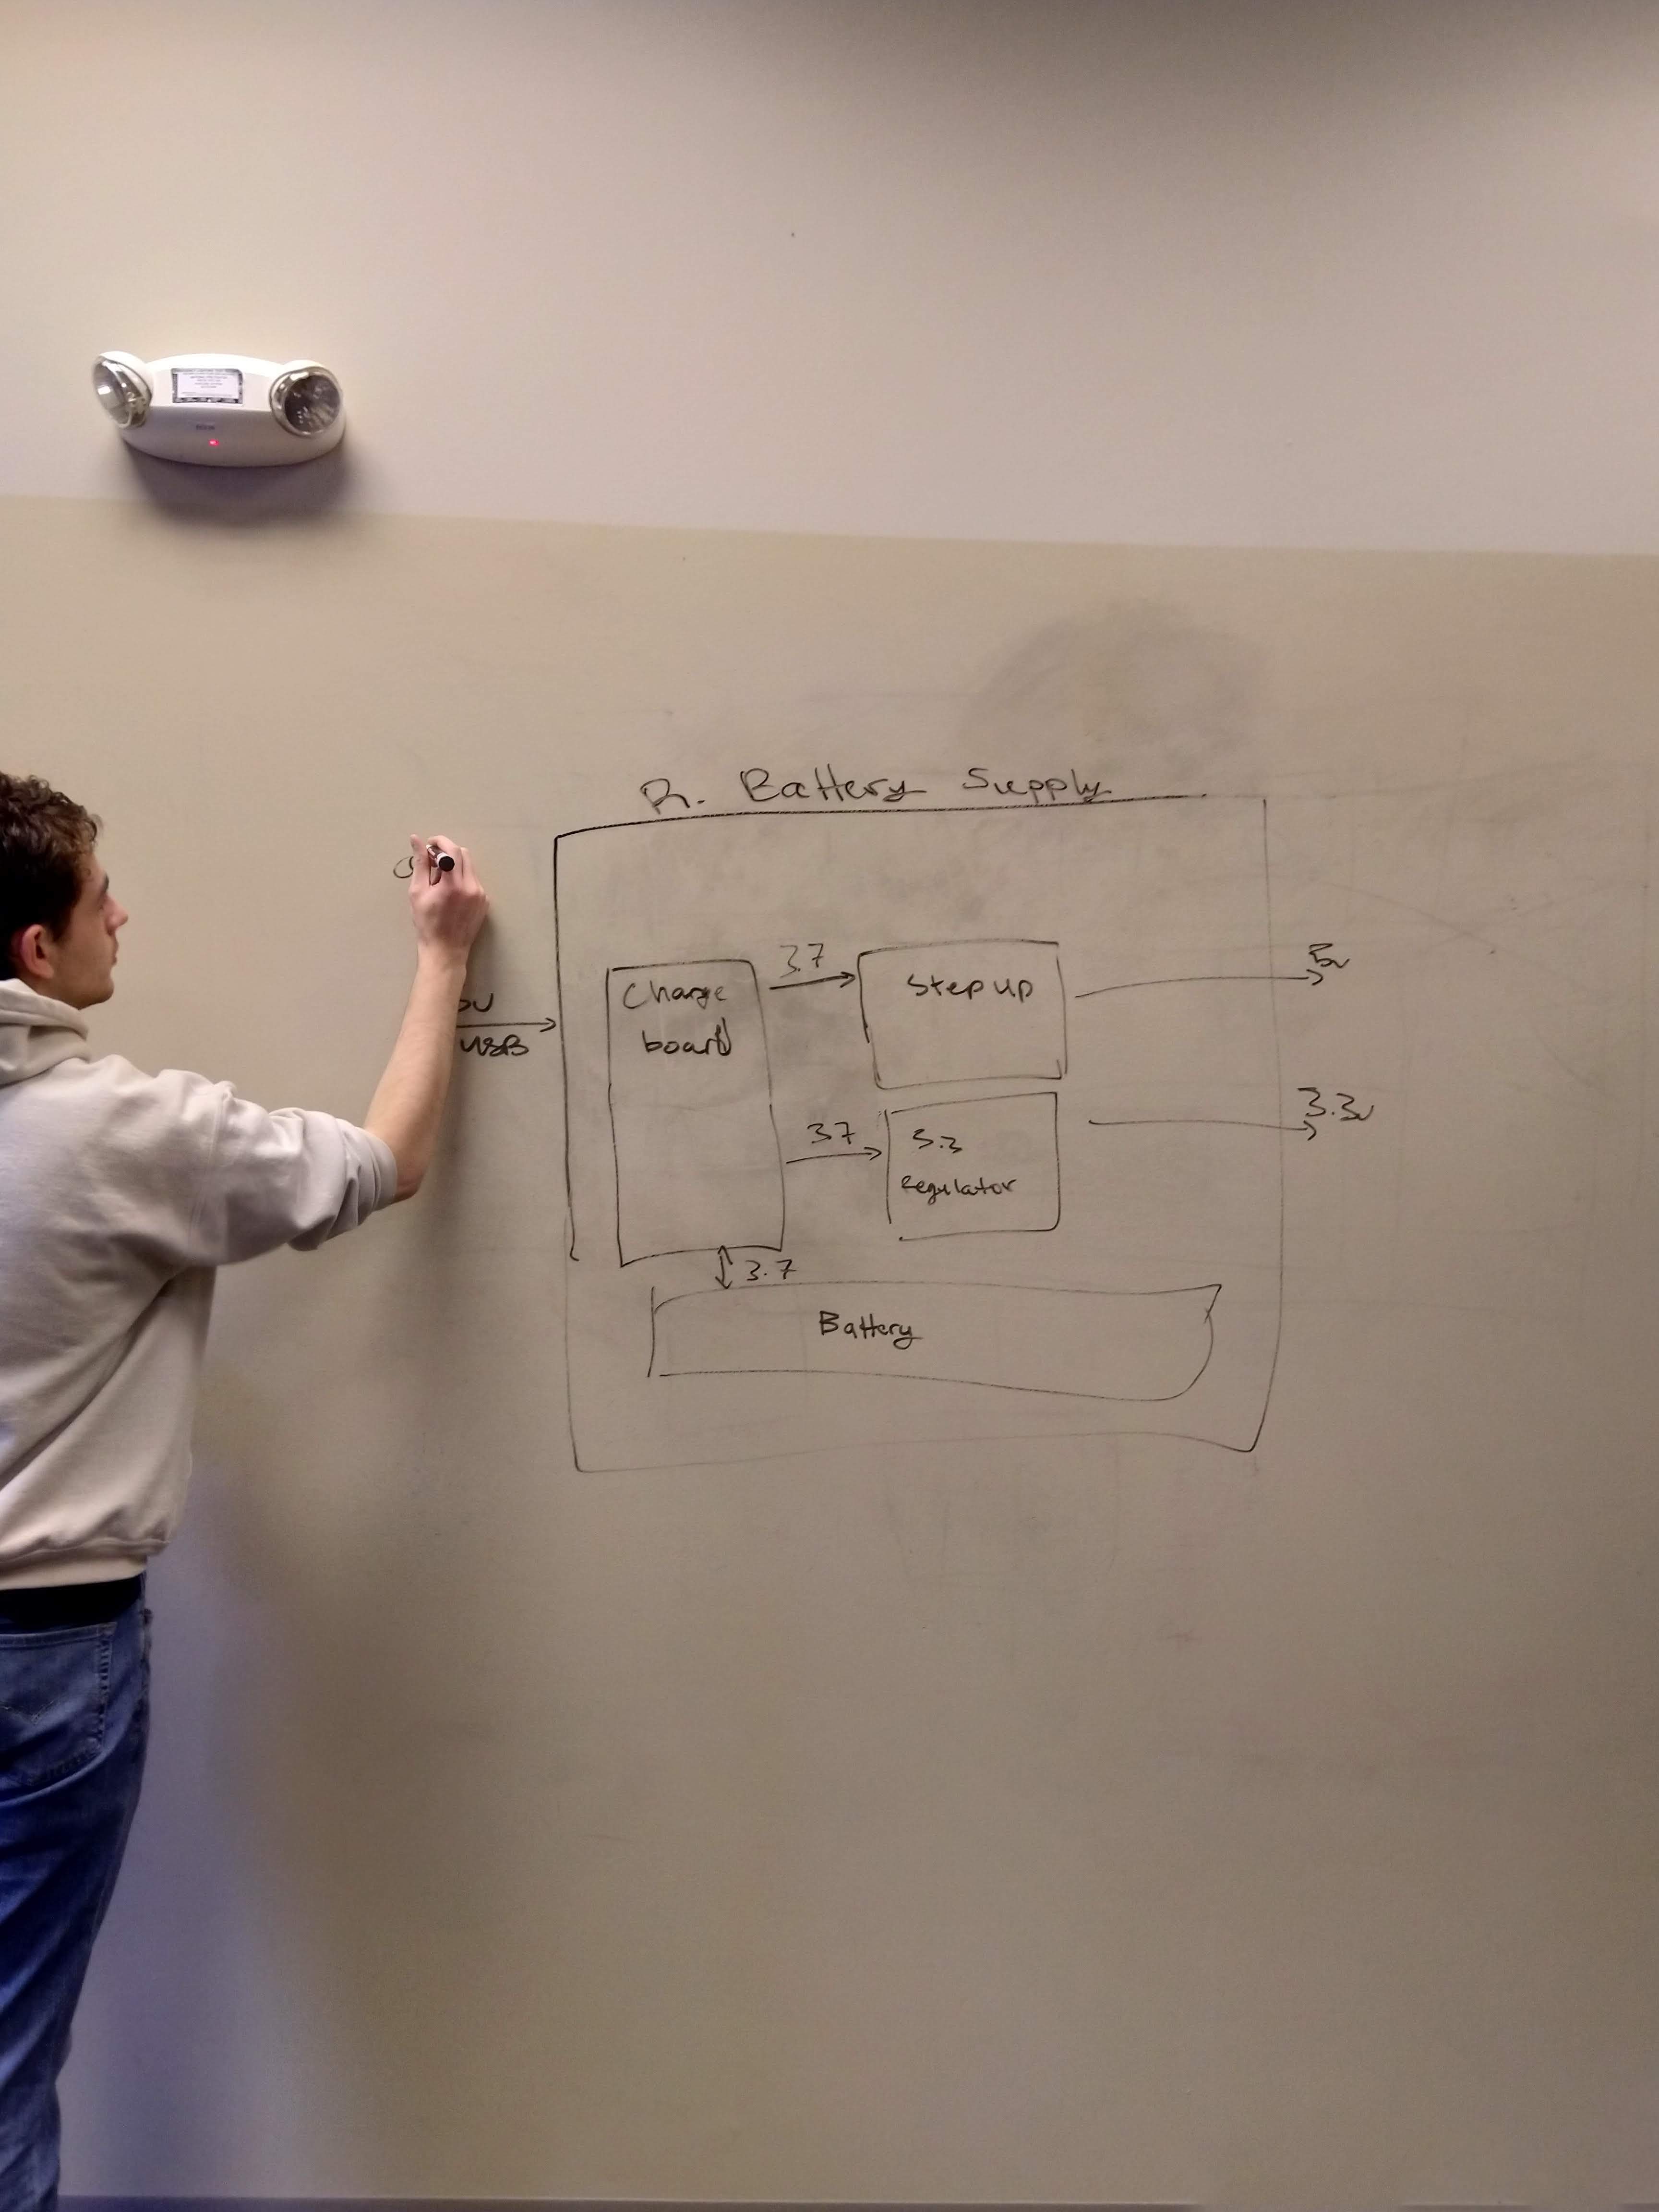 R. Battery Supply
5v
USB
Charge
board
3.7
Step up
5v
3.7
3.3
Regulator
3.3v
3.7
Battery